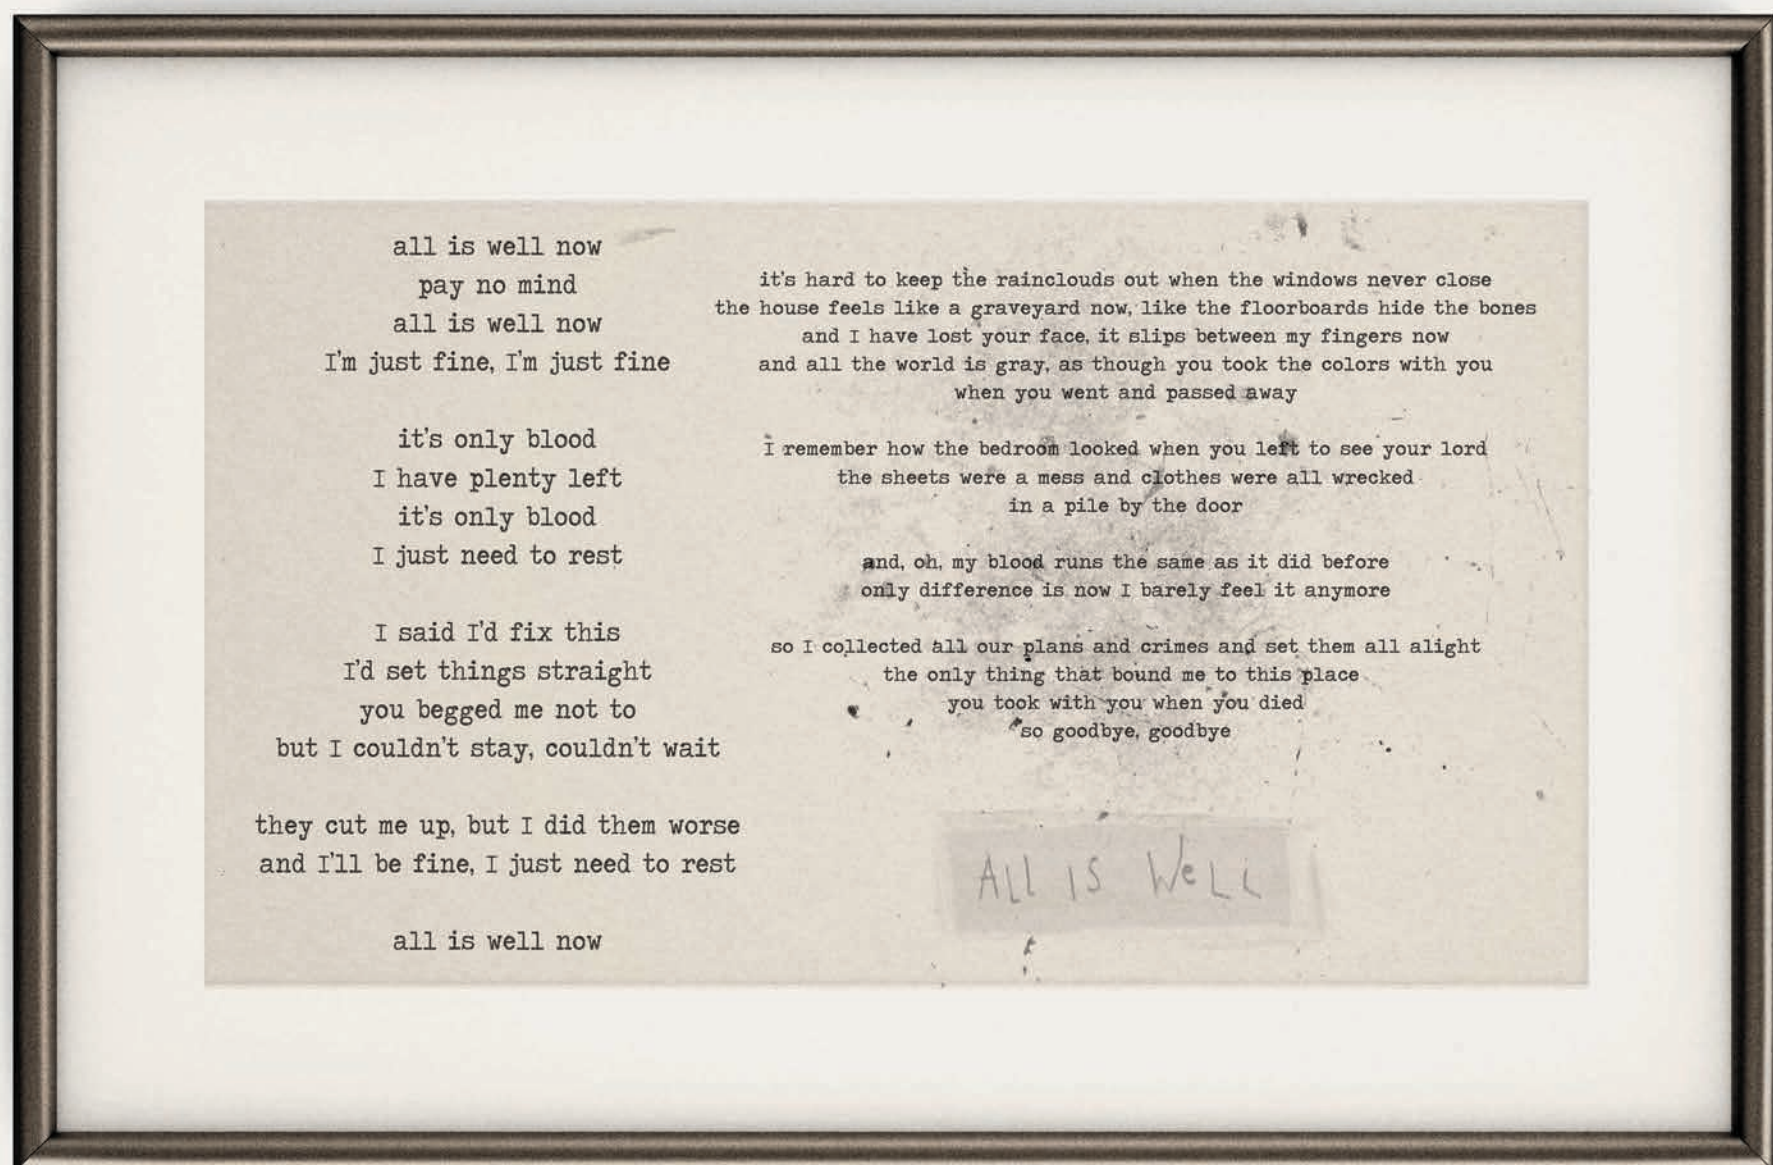 all is well now
pay no mind
all is well now
I'm just fine, I'm just fine
it's only blood
I have plenty left
it's only blood
I just need to rest
I said I'd fix this
I'd set things straight
you begged me not to
but I couldn't stay, couldn't wait
they cut me up, but I did them worse
and I'll be fine, I just need to rest
all is well now
it's hard to keep the rainclouds out when the windows never close
the house feels like a graveyard now, like the floorboards hide the bones
and I have lost your face, it slips between my fingers now
and all the world is gray, as though you took the colors with you
when you went and passed away
I remember how the bedroom looked when you left to see your lord
the sheets were a mess and clothes were all wrecked
in a pile by the door
and, oh, my blood runs the same as it did before
only difference is now I barely feel it anymore
so I collected all our plans and crimes and set them all alight
the only thing that bound me to this place
you took with you when you died
so goodbye, goodbye
ALL IS WeLL